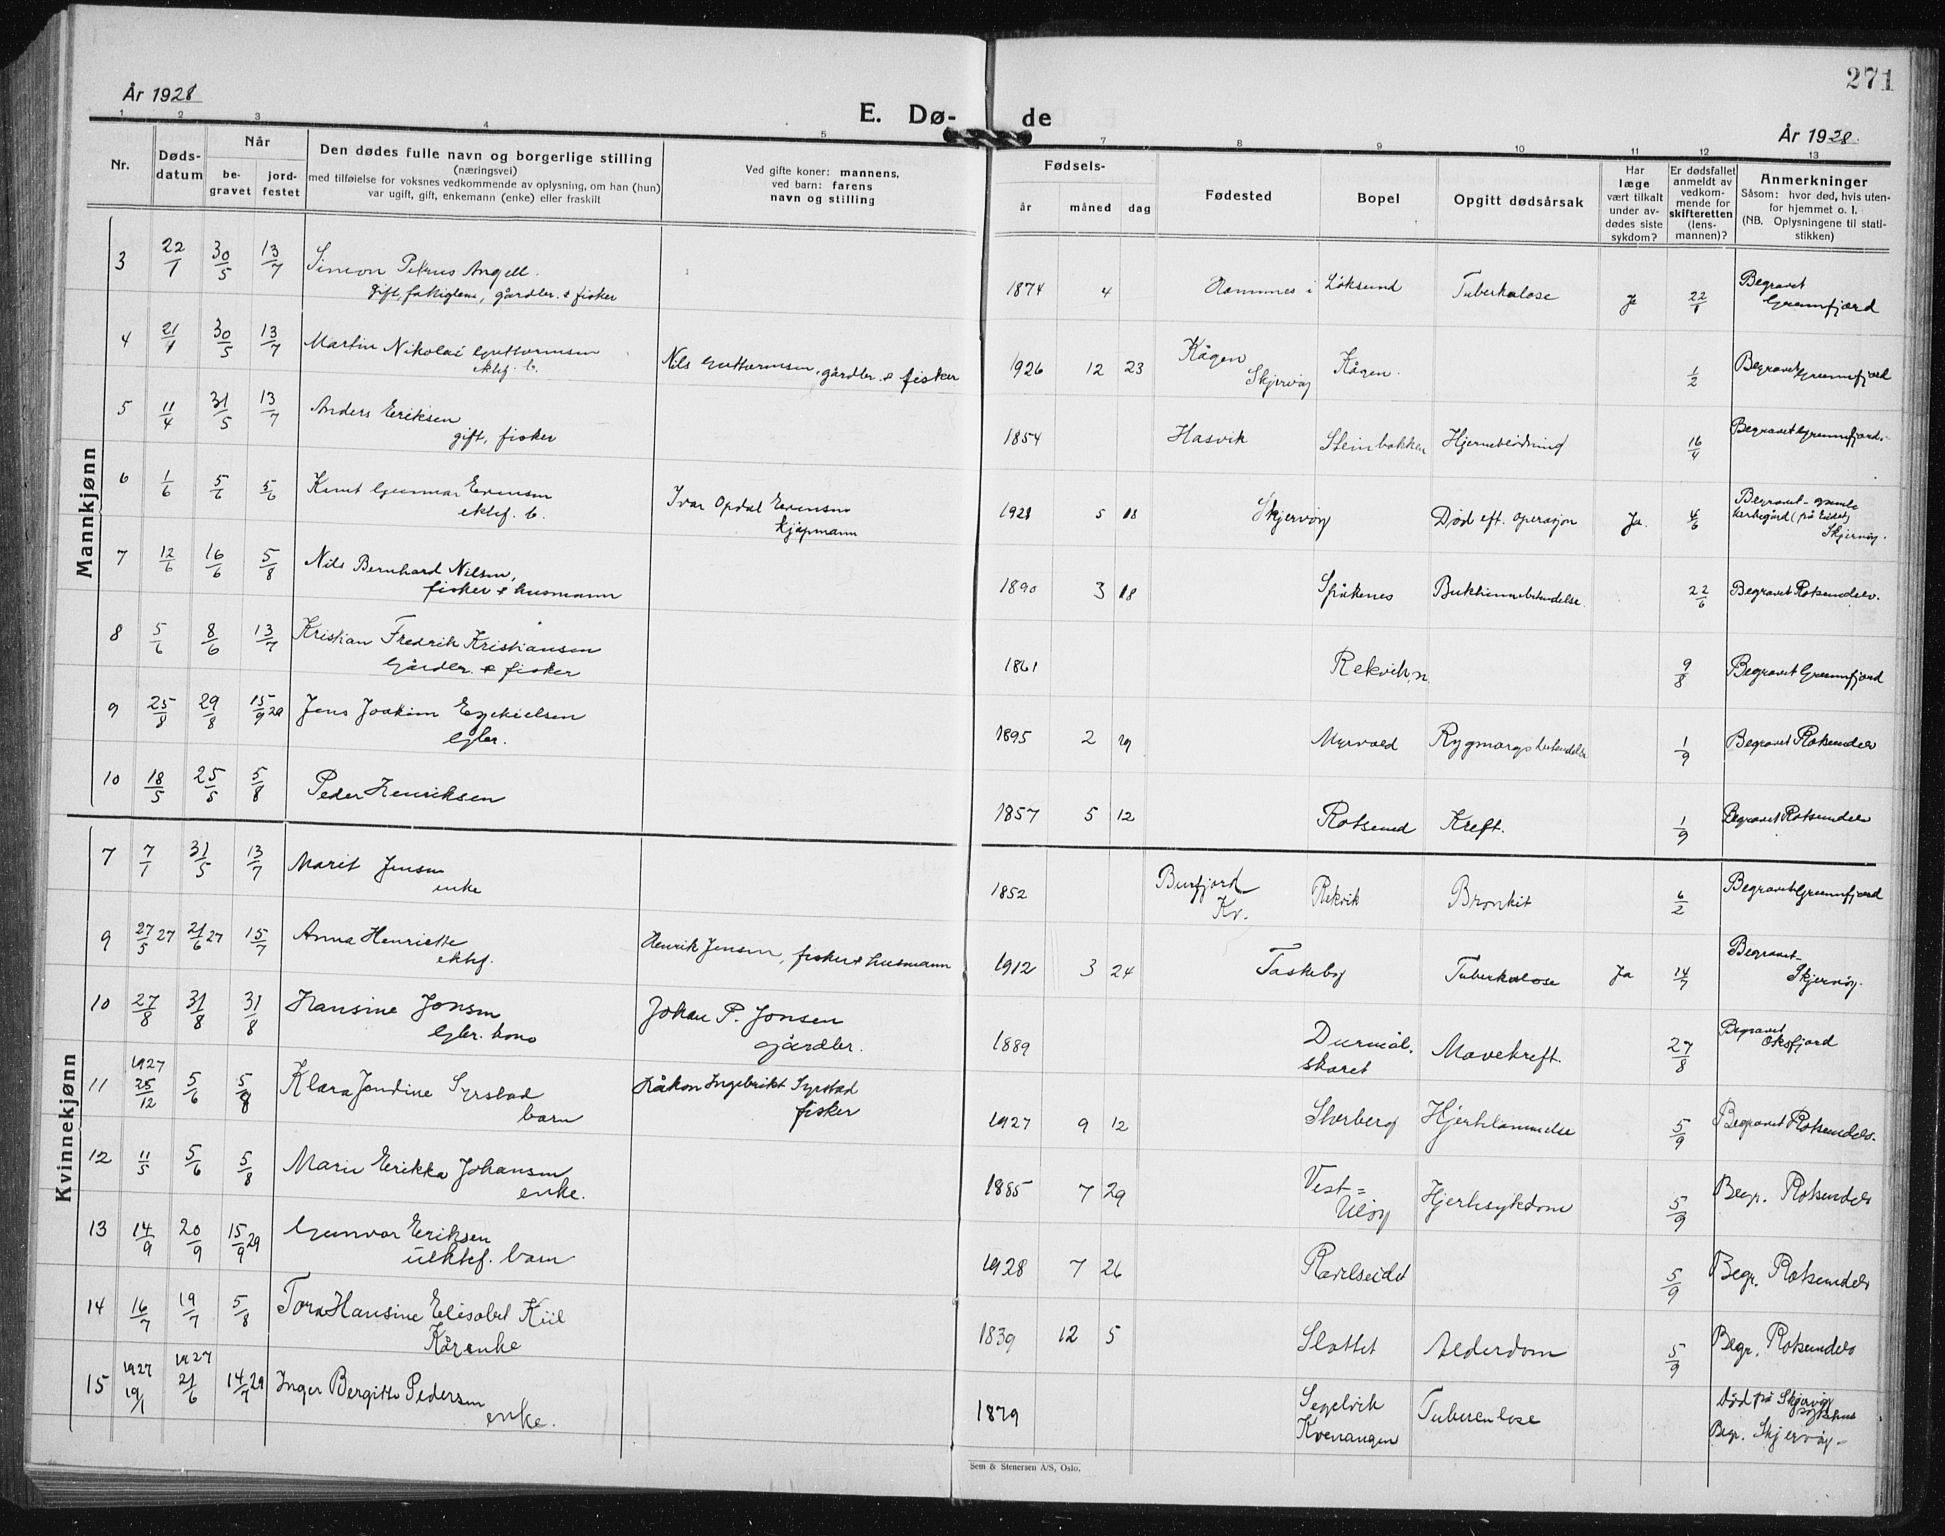 271
År 1928
E. Dø-
de
År 1928.
1 2 3 4 5 7 8 9 10 11 12 13
Nr.
Døds-
datum
Når
be-
gravet
jord-
festet
Den dødes fulle navn og borgerlige stilling
(næringsvei)
med tilføielse for voksnes vedkommende av oplysning, om han (hun)
var ugift, gift, enkemann (enke) eller fraskilt
Ved gifte koner: mannens,
ved barn: farens
navn og stilling
Fødsels-
år måned dag
Fødested
Bopel
Opgitt dødsårsak
Har
læge
vært tilkalt
under av-
dødes siste
sykdom?
Er dødsfallet
anmeldt av
vedkom-
mende for
skifteretten
(lens-
mannen)?
Anmerkninger
Såsom: hvor død, hvis uten-
for hjemmet o. l.
(NB. Oplysningene til stati-
stikken)
Mannkjønn
3 22/1 30/5 13/7 Simon Petrus Angell. 1874 4 Løksund Tuberkulose Ja 22/1 Begravet
gift, gårdbr. & fisker
4 21/1 30/5 13/7 Martin Nikolai Guttormsen Nils Guttormsen, gårdbr. & fisker 1926 12 23 Kågen Kågen. 1/2 Begravet
ektef. b. Skjervøy
5 11/4 31/5 13/7 Anders Eriksen 1854 Hasvik Steinbakken Hjerneblødning 16/4 Begravet
gift, fisker
6 1/6 5/6 5/6 Knut Gunnar Evensen Ivar Opdal Evensen 1928 5 18 Skjervøy Død eft. operasjon Ja. 4/6 Begravet gamle
ektef. b. kjøpmann kirkegård (på Eidet)
Skjervøy.
7 12/6 16/6 5/8 Nils Bernhard Nilsen, 1890 3 18 Spåkenes Bukhinnebetendelse. 22/6 Begravet Rotsundelv.
fisker & husmann
8 5/6 8/6 13/7 Kristian Fredrik Kristiansen 1861 9/8 Begravet
Gårdbr. & fisker
9 25/8 29/8 15/9 29 Jens Joakim Ezekielsen 1895 2 19 Myrvold Rygmargsbetendelse 1/9 Begravet Rotsundelv
Gbr.
10 18/5 25/5 5/8 Peder Henriksen 1857 5 12 Rotsund Kreft. 1/9 Begravet Rotsundelv
Kvinnekjønn
7 7/1 31/5 13/7 Marit Jensen 1852 Burfjord Rekvik Bronkit 6/2 Begravet
enke Kv.
9 27/5 27 21/6 27 15/7 Anna Henriette Henrik Jensen, fisker & husmann 1912 3 24 Taskeby Tuberkulose Ja 14/7 Begravet
ektef. Skjervøy.
10 27/8 31/8 31/8 Hansine Jonsen Johan P. Jonsen 1889 Durmål- Mavekreft. 27/8 Begravet
Gbr. kone gårdbr. skaret Oksfjord
11 1927 25/12 5/6 5/8 Klara Jendine Syrstad Håkon Ingebrikt Syrstad 1927 9 12 Storberg Hjertelammelse 5/9 Begravet Rotsundelv.
barn fisker
12 11/5 5/6 5/8 Marie Erikka Johansen 1885 7 29 Vest= Hjertesykdom 5/9 Begr. Rotsundelv
enke. Uløy
13 14/9 20/9 15/9 29 Gunvor Eriksen 1928 7 26 Ravelseidet 5/9 Begr. Rotsundelv
uektef. barn
14 16/7 19/7 5/8 Tora Hansine Elisabet Kiil 1839 12 5 Slottet Alderdom 5/9 Begr. Rotsundelv
Kårenke
15 1927 19/1 1927 21/6 14/7 29 Inger Bergitte Pedersen 1879 Segelvik Tuberkulose Død på Skjervøy
enke. Kvenangen sykehus
Begr. Skjervøy
Sem & Stenersen A/S, Oslo.